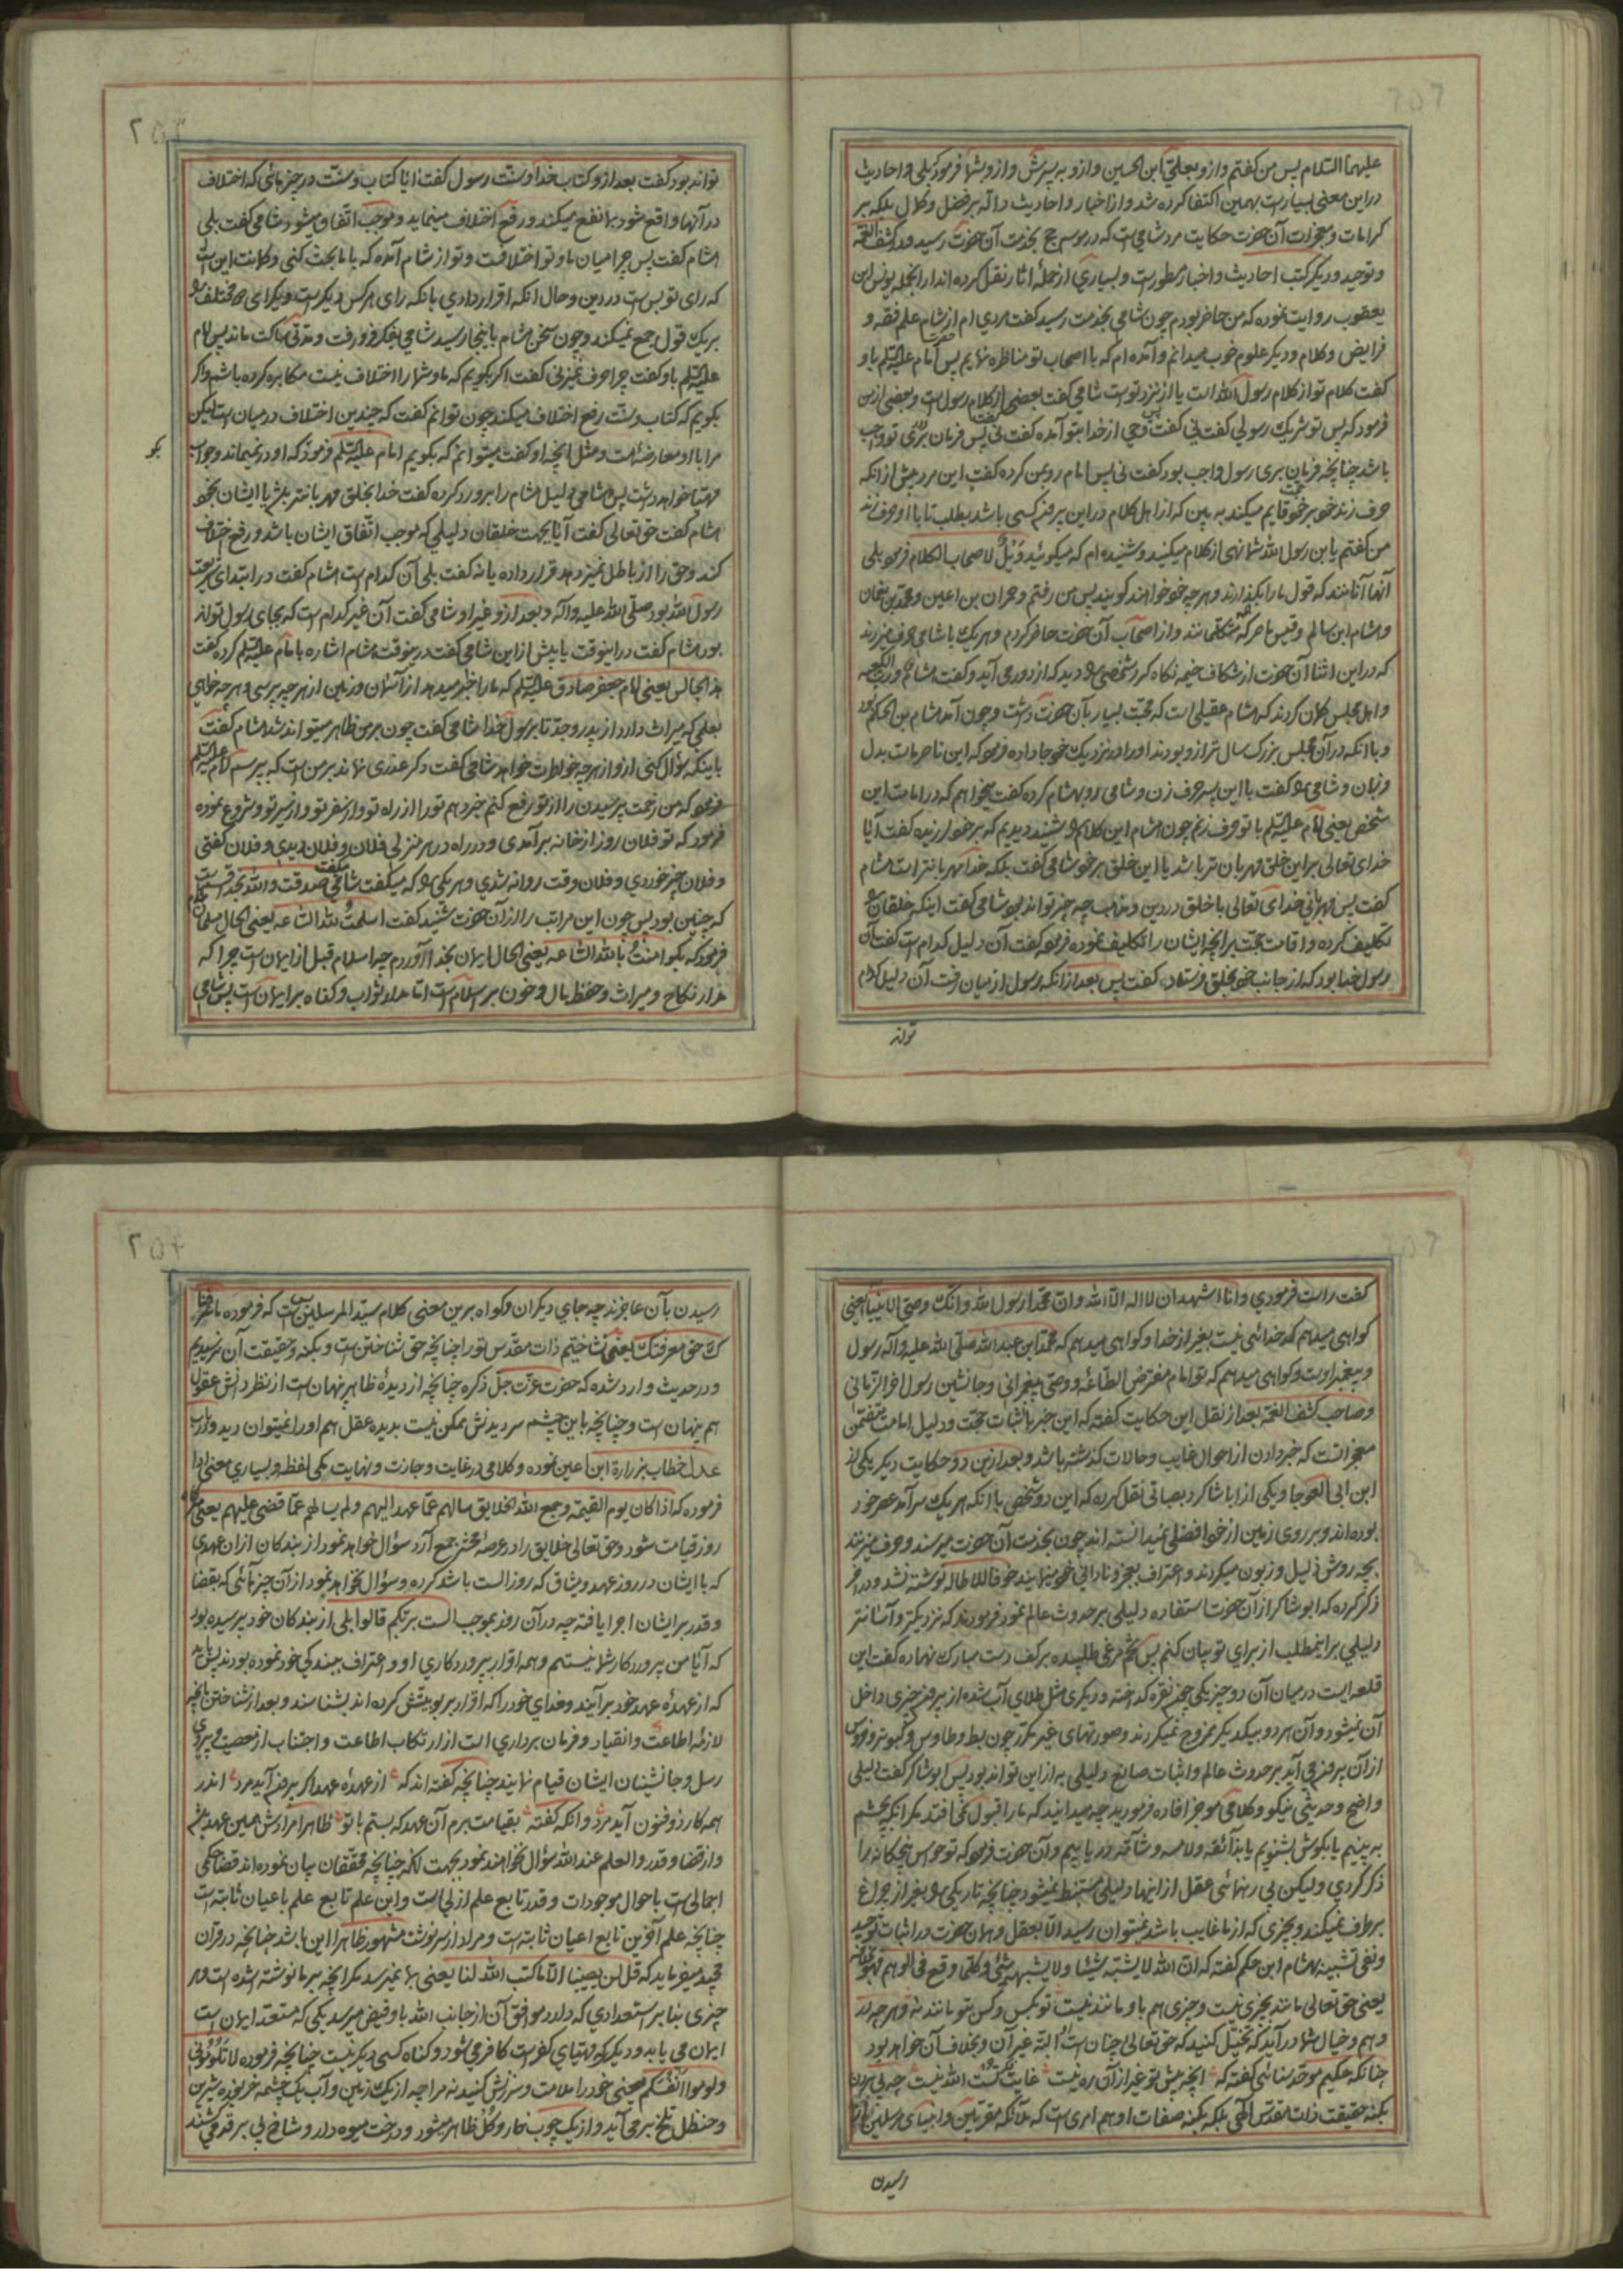 علیهما السلام پس من کفتم وازو بعلی ابن الحسین وازو به پسرش وازو بشما فرمود بلی و احادیث
دراین معنی بسیارست بهمین اکتفا کرده شد و از اخبار و احادیث داله بر فضل و کمال بلکه بر
کرامات و معجزات آن حضرت حکایت مرد شامی است که در موسم حج بخدمت آن حضرت رسید و در کشف الغمه
و توحید و دیکر کتب احادیث و اخبار مسطورست و بسیاری از جمله آثار نقل کرده اند از انجمله یونس ابن
یعقوب روایت نموده که من حاضر بودم چون شامی بخدمت رسید کفت مردی ام از شام علم فقه و
فرایض و کلام و دیکر علوم خوب میدانم و آمده ام که با اصحاب تو مناظره نمایم پس حضرت امام علیه السلم باو
کفت کلام تو از کلام رسول الله است یا از نزد توست شامی کفت بعضی از کلام رسول است و بعضی از من
فرمود که پس تو شریک رسولی کفت نی کفت وحی از خدا بتو آمده کفت نی پس فرمان بری تو واجب
باشد چنانچه فرمان بری رسول واجب بود کفت نی پس امام رو بمن کرده کفت این مرد پیش از انکه
حرف زند خود بر خود حجت قایم میکند به بین که از اهل کلام در این بیرون کسی باشد بطلب تا با او حرف زند
من کفتم یا بن رسول الله شما نهی از کلام میکنید و شنیده ام که میکوئید ویل لاصحاب الکلام فرمود بلی
آنها آنانند که قول ما را بکذارند و هر چه خود خواهند کویند پس من رفتم و حمران بن اعین و محمد بن نعمان
و هشام ابن سالم و قیس ماصر که همه متکلمانند و از اصحاب آن حضرت حاضر کردم و هر یک با شامی حرف میزدند
که در این اثنا آن حضرت از شکاف خیمه نکاه کرد شخصی را دید که از دور می آید و کفت هشام و رب الکعبه
و اهل مجلس کمان کردند که هشام عقیلی است که محبت بسیار بآن حضرت داشت و چون آمد هشام بن الحکم بود
و با انکه در آن مجلس بزرک سال تر ازو بودند او را در نزدیک خود جا داده فرمود که این ناصر ماست بدل
و زبان و شامی را کفت با این پسر حرف زن و شامی رو بهشام کرده کفت میخواهم که در امامت این
شخص یعنی امام علیه السلم با تو حرف زنم چون هشام این کلام را شنید دیدیم که بر خود لرزیده کفت آیا
خدای تعالی بر این خلق مهربان تر باشد یا این خلق بر خود شامی کفت بلکه خدا مهربانتر است هشام
کفت پس مهربانی خدای تعالی با خلق در دین و مذهب چه چیز تواند بود شامی کفت اینکه خلقان را
تکلیف کرده و اقامت حجت بر انچه ایشان را تکلیف نموده فرموده کفت آن دلیل کدام است کفت آن
رسول خدا بود که از جانب خود بخلق فرستاد کفت پس بعد از انکه رسول از میان رفت آن دلیل کدام
تواند
تواند بود کفت بعد ازو کتاب خدا و سنت رسول کفت ایا کتاب و سنت در چیزهائی که اختلاف
در آنها واقع شود بما نفع میکند و رفع اختلاف مینماید و موجب اتفاق میشود شامی کفت بلی
هشام کفت پس چرا میان ما و تو اختلافست و تو از شام آمده که با ما بحث کنی و کمانت این است
که رای تو بس است در دین و حال انکه اقرار داری بانکه رای هر کس دیکرست و یکرای مختلف را
بر یک قول جمع نمیکند و چون سخن هشام باینجا رسید شامی بفکر فرو رفت و مدتی ساکت ماند پس امام
علیه السلم باو کفت چرا حرف نمیزنی کفت اکر بکویم که ما و شما را اختلاف نیست مکابره کرده باشم و اکر
بکویم که کتاب و سنت رفع اختلاف میکند چون توانم کفت که چندین اختلاف در میان است لیکن
مرا با او معارضه است و مثل انچه او کفت میتوانم که بکویم امام علیه السلم فرمود که او در نمیماند و جواب
مهیا خواهد داشت پس شامی دلیل هشام را برو رد کرده کفت خدا بخلق مهربانتر باشد یا ایشان بخود
هشام کفت حق تعالی کفت آیا بجهت خلقان دلیلی که موجب اتفاق ایشان باشد و رفع اختلاف
کند و حق را از باطل تمیز دهد قرار داده یا نه کفت بلی آن کدام است هشام کفت در ابتدای شریعت
رسول الله بود صلی الله علیه وآله و بعد ازو غیر او شامی کفت آن غیر کدام است که بجای رسول تواند
بود هشام کفت در اینوقت یا پیش ازاین شامی کفت درینوقت هشام اشاره بامام علیه السلم کرده کفت
هذا الجالس یعنی امام جعفر صادق علیه السلم که ما را خبر میدهد از آسمان و زمین از هر چه پرسی و هر چه خواهی
بعلمی که میراث دارد از پدر و جد تا برسول خدا شامی کفت چون بر من ظاهر میتواند شد هشام کفت
باینکه سؤال کنی ازو از هر چه خواطرت خواهد شامی کفت دکر عذری نماند بر من است که بپرسم امام علیه السلم
فرمود که من زحمت پرسیدن را از تو رفع کنم خبر دهم تو را از راه تو و از سفر تو و از سیر تو و شروع نموده
فرمود که تو فلان روز از خانه برآمدی و در راه در هر منزلی فلان و فلان دیدی و فلان کفتی
و فلان چیز خوردی و فلان وقت روانه شدی و هر یکی را که میکفت شامی میکفت صدقت والله بخدا قسم است
که چنین بود پس چون این مراتب را از آن حضرت شنید کفت اسلمت لله الساعه یعنی الحال مسلمان شدم
فرمود که بکو امنت بالله الساعه یعنی الحال ایمان بخدا آوردم چه اسلام قبل از ایمان است چرا که
مدار نکاح و میراث و حفظ مال و خون بر اسلام است اما مدار ثواب و کناه بر ایمان است پس شامی
کفت راست فرمودی و انا اشهد ان لا اله الا الله و ان محمدا رسول الله و انک وصی الانبیا یعنی
کواهی میدهم که خدائی نیست بغیر از خدا و کواهی میدهم که محمد ابن عبد الله صلی الله علیه وآله رسول
و پیغمبر اوست و کواهی میدهم که تو امام مفترض الطاعه و وصی پیغمبرانی و جانشین رسول آخر الزمانی
و صاحب کشف الغمه بعد از نقل این حکایت کفته که این خبر باثبات حجت و دلیل امامت متضمن
معجز است که خبر دادن از احوال غایب و حالات کذشته باشد و بعد ازین دو حکایت دیکر یکی از
ابن ابی العوجا و یکی از ابا شاکر دیصانی نقل کرده که این دو شخص با انکه هر یک سرآمد عصر خود
بوده اند و بر روی زمین از خود افضلی نمیدانسته اند چون بخدمت آن حضرت میرسند و حرف میزنند
بچه روش ذلیل و زبون میکردند و اعتراف بعجز و نادانی خود مینمایند خوفا للاطاله نوشته نشد و در آخر
ذکر کرده که ابو شاکر از آن حضرت استفاده دلیلی بر حدوث عالم نمود فرمودند که نزدیکتر و آسانتر
دلیلی بر اینمطلب از برای تو بیان کنم پس تخم مرغی طلبیده بر کف دست مبارک نهاده کفت این
قلعه ایست در میان آن دو چیز یکی چون نقره کداخته و دیکری مثل طلای آب شده از بیرون چیزی داخل
آن نمیشود و آن هر دو بیکدیکر ممزوج نمیکردند و صورتهای غیر مکرر چون بط و طاوس و کبوتر و خروس
از آن بیرون می آید بر حدوث عالم و اثبات صانع دلیلی به از این تواند بود پس ابو شاکر کفت دلیلی
واضح و حدیثی نیکو و کلامی موجز افاده فرمودید چه میدانید که ما را قبول نمی افتد مکر انکه بچشم
به بینیم یا بکوش بشنویم یا بذائقه و لامسه و شامه دریابیم و آن حضرت فرمود که تو حواس پنجکانه را
ذکر کردی و لیکن بی رهنمائی عقل از اینها دلیلی مستنبط نمیشود چنانچه تاریکی را بغیر از چراغ
برطرف نمیکند و بچیزی که از ما غایب باشد نمیتوان رسید الا بعقل و همان حضرت در اثبات توحید
و نفی تشبیه بهشام ابن حکم کفته که ان الله لا یشبه شیئا و لا یشبهه شئ و کلما وقع فی الوهم فهو بخلافه
یعنی حق تعالی مانند بچیزی نیست و چیزی هم باو مانند نیست تو بکس و کس بتو مانند نه و هر چه در
وهم و خیال شما درآید که تخیل کنید که حق تعالی چنان است البته غیر آن و بخلاف آن خواهد بود
چنانکه حکیم موحد سنائی کفته که انچه پیش تو غیر از آن ره نیست غایت فکر تست الله نیست چه پی بردن
بکنه حقیقت ذات مقدس الهی بلکه بکنه صفات او هم امری است که ملائکه مقربین و انبیای مرسلین از
رسیدن
رسیدن بآن عاجزند چه جای دیکران و کواه برین معنی کلام سید المرسلین است که فرموده ما عرفنا
ک حق معرفتک یعنی نشناختیم ذات مقدس تو را چنانچه حق شناختن است و بکنه و حقیقت آن نرسیدیم
و در حدیث وارد شده که حضرت عزت جل ذکره چنانچه از دیدهٔ ظاهر پنهان است از نظر دانش عقول
هم پنهان است و چنانچه باین چشم سر دیدنش ممکن نیست بدیده عقل هم او را نمیتوان دید و در باب
عدل خطاب بزرارة ابن اعین نموده و کلامی در غایت وجازت و نهایت یکی لفظ و بسیاری معنی ادا
فرموده که اذا کان یوم القیمة و جمع الله الخلایق سالهم عما عهد الیهم و لم یسالهم عما قضی علیهم یعنی هرگاه
روز قیامت شود و حق تعالی خلایق را در عرصه محشر جمع آرد سؤال خواهد نمود از بندکان از ان عهدی
که با ایشان در روز عهد و میثاق که روز الست باشد کرده و سؤال نخواهد نمود از آن چیزهائی که بقضا
و قدر بر ایشان اجرا یافته چه در آن روز بموجب الست بربکم قالوا بلی از بندکان خود پرسیده بود
که آیا من پروردکار شما نیستم و همه اقرار بپروردکاری او و اعتراف ببندکی خود نموده بودند پس باید
که از عهدهٔ عهد خود برآیند و خدای خود را که اقرار بربوبیتش کرده اند بشناسند و بعد از شناختن بانچه
لازمهٔ اطاعت و انقیاد و فرمان برداری است از ارتکاب اطاعت و اجتناب از معصیت و پیروی
رسل و جانشینان ایشان قیام نمایند چنانچه کفته اند که از عهدهٔ عهد اکر برون آید مرد از هر
همه کار ذوفنون آید مرد و انکه کفته بقیامت برم آن عهد که بستم با تو ظاهرا مرادش همین عهد باشد
و از قضا و قدر و العلم عند الله سؤال نخواهند نمود بجهت انکه چنانچه محققان بیان نموده اند قضا حکمی
اجمالی است باحوال موجودات و قدر تابع علم ازلی است و این علم تابع علم باعیان ثابته است
چنانچه علم آفرین تابع اعیان ثابته است و مراد از سرنوشت مشهور ظاهرا این باشد چنانچه در قرآن
مجید میفرماید که قل لن یصیبنا الا ما کتب الله لنا یعنی بما نمیرسد مکر انچه بر ما نوشته شده است و هر
چیزی بنا بر استعدادی که دارد موافق آن از جانب الله باو فیض میرسد یکی که مستعد ایمان است
ایمان می یابد و دیکر که مهیای کفر است کافر می شود و کناه کسی دیکر نیست چنانچه فرموده لا تلومونی
ولوموا انفسکم یعنی خود را ملامت و سرزنش کنید نه مرا چه از یک زمین و آب یک چشمه خربزه شیرین
و حنظل تلخ برمی آید و از یک چوب خار و کل ظاهر میشود و درخت میوه دار و شاخ بی بر قد می کشند